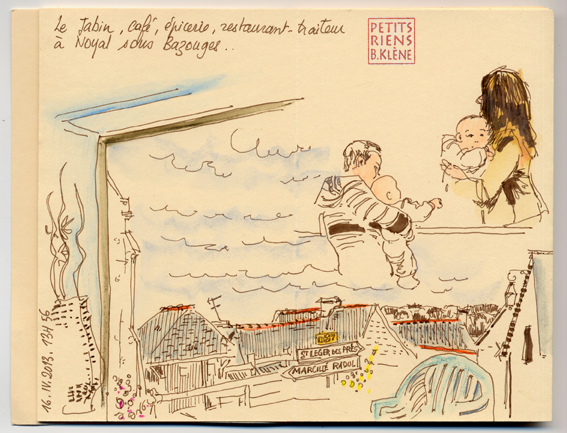 Le Jabin, café, épicerie, restaurant-traiteur
à Noyal sous Bazouges..
PETITS
RIENS
B.KLÈNE
16.IV.2013. 13H56
ST LEGER DES PRÉS
MARCILLÉ RAOUL